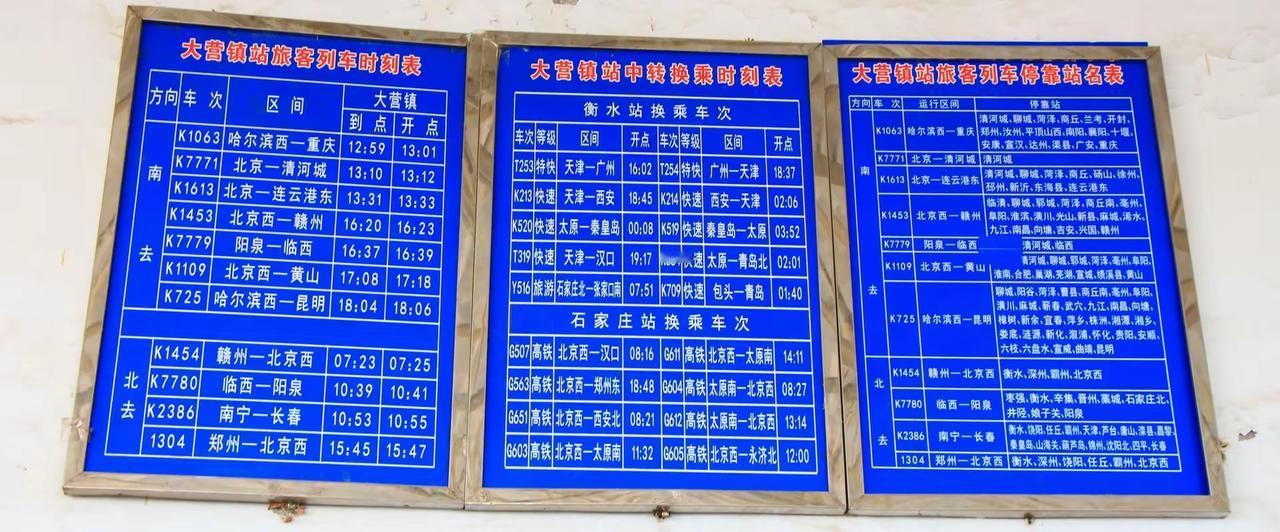 大营镇站旅客列车时刻表
方向 车次 区间 大营镇
到点 开点
南去
K1063 哈尔滨西—重庆 12:59 13:01
K7771 北京—清河城 13:10 13:12
K1613 北京—连云港东 13:31 13:33
K1453 北京西—赣州 16:20 16:23
K7779 阳泉—临西 16:37 16:39
K1109 北京西—黄山 17:08 17:18
K725 哈尔滨西—昆明 18:04 18:06
北去
K1454 赣州—北京西 07:23 07:25
K7780 临西—阳泉 10:39 10:41
K2386 南宁—长春 10:53 10:55
1304 郑州—北京西 15:45 15:47
大营镇站中转换乘时刻表
衡水站换乘车次
车次 等级 区间 开点 车次 等级 区间 开点
T253 特快 天津—广州 16:02 T254 特快 广州—天津 18:37
K213 快速 天津—西安 18:45 K214 快速 西安—天津 02:06
K520 快速 太原—秦皇岛 00:08 K519 快速 秦皇岛—太原 03:52
T319 快速 天津—汉口 19:17 速 太原—青岛北 02:01
Y516 旅游 石家庄北—张家口南 07:51 K709 快速 包头—青岛 01:40
石家庄站换乘车次
G507 高铁 北京西—汉口 08:16 G611 高铁 北京西—太原南 14:11
G563 高铁 北京西—郑州东 18:48 G604 高铁 太原南—北京西 08:27
G651 高铁 北京西—西安北 08:21 G612 高铁 太原南—北京西 13:14
G603 高铁 北京西—太原南 11:32 G605 高铁 北京西—永济北 12:00
大营镇站旅客列车停靠站名表
方向 车次 运行区间 停靠站
南去
K1063 哈尔滨西—重庆 清河城、聊城、菏泽、商丘、兰考、开封、
郑州、汝州、平顶山西、南阳、襄阳、十堰、
安康、宣汉、达州、渠县、广安、重庆
K7771 北京—清河城 清河城
K1613 北京—连云港东 清河城、聊城、菏泽、商丘、砀山、徐州、
邳州、新沂、东海县、连云港东
K1453 北京西—赣州 临清、聊城、郓城、菏泽、商丘南、亳州、
阜阳、淮滨、潢川、光山、新县、麻城、浠水、
九江、南昌、向塘、吉安、兴国、赣州
K7779 阳泉—临西 清河城、临西
K1109 北京西—黄山 清河城、聊城、郓城、菏泽、亳州、阜阳、
淮南、合肥、巢湖、芜湖、宣城、绩溪县、黄山
K725 哈尔滨西—昆明 聊城、阳谷、菏泽、曹县、商丘南、亳州、阜阳、
潢川、麻城、蕲春、武穴、九江、南昌、向塘、
樟树、新余、宜春、萍乡、株洲、湘潭、湘乡、
娄底、涟源、新化、溆浦、怀化、贵阳、安顺、
六枝、六盘水、宣威、曲靖、昆明
北去
K1454 赣州—北京西 衡水、深州、霸州、北京西
K7780 临西—阳泉 枣强、衡水、辛集、晋州、藁城、石家庄北、
井陉、娘子关、阳泉
K2386 南宁—长春 衡水、饶阳、任丘、霸州、天津、芦台、唐山、滦县、昌黎、
秦皇岛、山海关、葫芦岛、锦州、沈阳北、四平、长春
1304 郑州—北京西 衡水、深州、饶阳、任丘、霸州、北京西